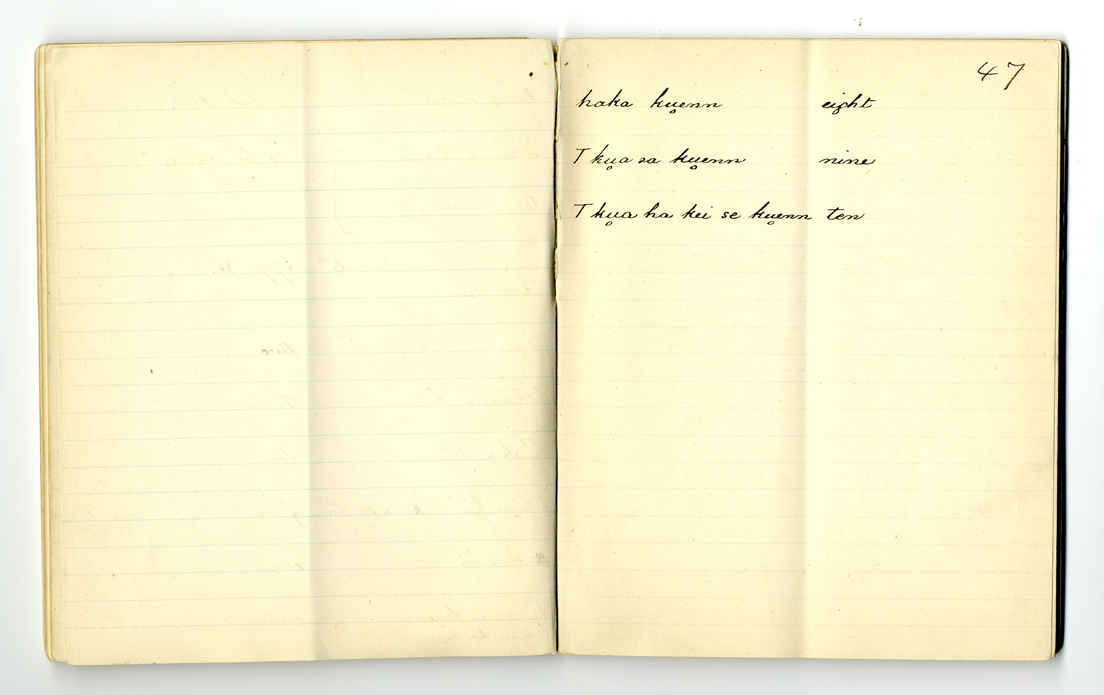 47
haka ku̥enn eight
T ku̥a sa ku̥enn nine
T ku̥a ha kei se ku̥enn ten